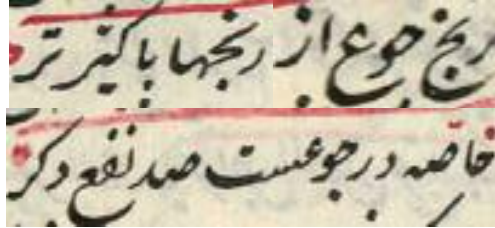 رنج جوع از رنجها پاکیزه تر
خاصه در جوعست صد نفع دگر